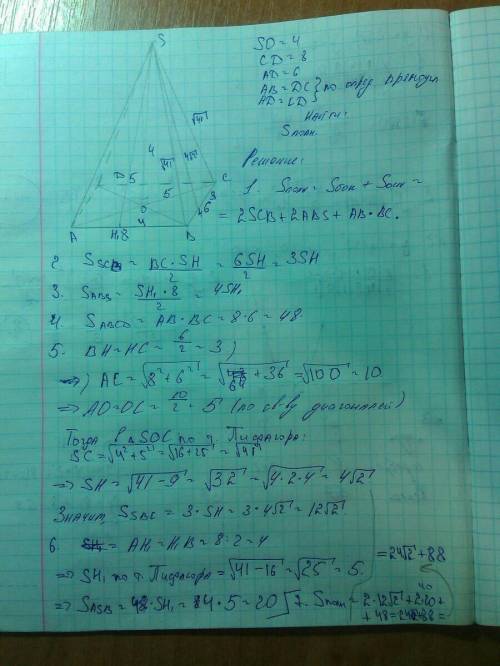 S
SO = 4
CD = 8
AD = 6
AB = DC } по опред.
AD = CD }
Найти:
Sполн.
√41
4
√41
4√2
D
5
C
5
3
O
6
4
A
H₁
8
B
Решение:
1. Sполн = Sбок + Sосн =
= 2SCB + 2ABS + AB·BC.
2. SSCB = BC·SH / 2 = 6SH / 2 = 3SH
3. SABS = SH₁·8 / 2 = 4SH₁
4. SABCD = AB·BC = 8·6 = 48.
5. BH = HC = 6/2 = 3)
⇒) AC = √8²+6² = √64+36 = √100 = 10
⇒ AO = OC = 10/2 = 5 (по св-ву диагоналей)
Тогда в ΔSOC по т. Пифагора:
SC = √4²+5² = √16+25 = √41
⇒ SH = √41-9 = √32 = √4·2·4 = 4√2
Значит, SSBC = 3·SH = 3·4√2 = 12√2
6. = AH₁ = H₁B = 8:2 = 4
⇒ SH₁ по т. Пифагора = √41-16 = √25 = 5.
⇒ SASB = 4·SH₁ = 4·5 = 20
7. Sполн = 2·12√2 + 2·20 +
40
+ 48 = 24√2+88 =
= 24√2 + 88